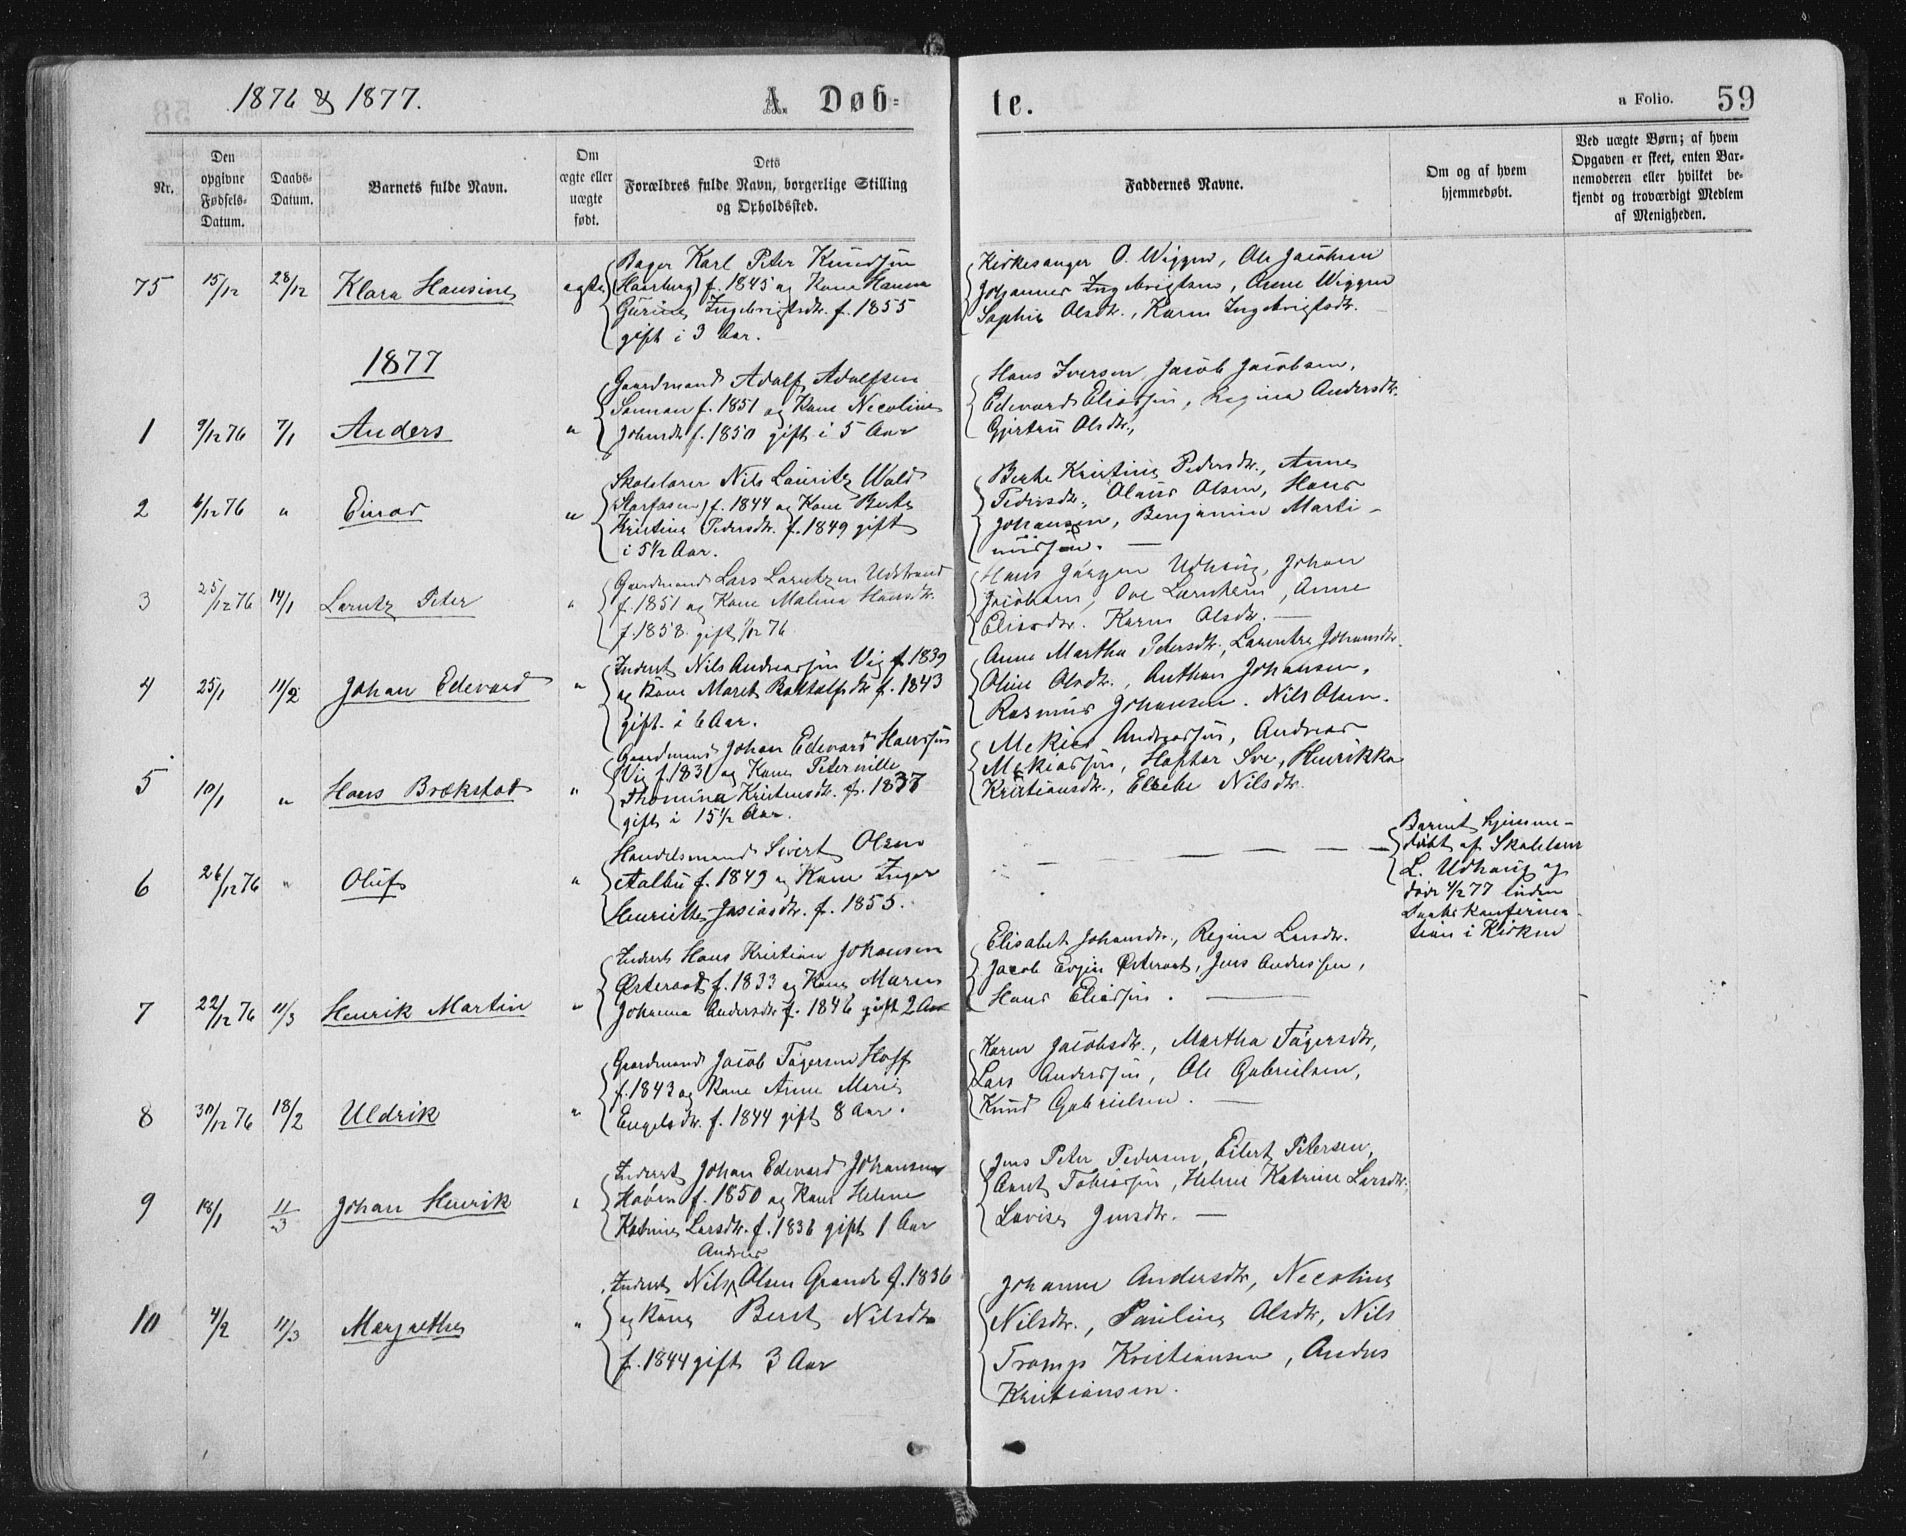 1876 & 1877.
A. Døb-
te.
a Folio. 59
Nr.
Den opgivne Fødsels-Datum.
Daabs-Datum.
Barnets fulde Navn.
Om ægte eller uægte født.
Dets Forældres fulde Navn, borgerlige Stilling og Opholdssted.
Faddernes Navne.
Om og af hvem hjemmedøbt.
Ved uægte Børn; af hvem Opgaven er skeet, enten Barnemoderen eller hvilket bekjendt og troværdigt Medlem af Menigheden.
75 15/12 28/12 Klara Hansine ægte
Bager Karl Peter Knudsen
f. 1845 og Kone Hanna
Ingebrigtsdtr. f. 1855
gift i 3 Aar.
Kirkesanger O. Wiggen, Ole Jacobsen
Johannes Ingebrigtsen, Anne Wiggen
Sophie Olsdtr., Karen Ingebrigtsdtr.
1877
1 9/12 76 7/1 Anders "
Gaardmand Adolf Adolfsen
f. 1851 og Kone Necoline
Johnsdtr f. 1850 gift i 5 Aar
Hans Iversen, Jacob Jacobsen,
Edevard Eliassen, Regina Andersdtr.
Olsdtr.,
2 6/12 76 " Einar "
Skolelærer Nils Lauritz Wold
f. 1844 og Kone Berte
Kristine Pedersdtr. f. 1849 gift
i 5 1/2 Aar.
Berthe Kristine Pedersdtr., Anne
Pedersdtr., Olaus Olsen, Hans
Johansen, Benjamin Marti-
nussen. —
3 25/12 76 14/1 Lorentz Peter "
Gaardmand Lars Lorentzen Udstrand
f. 1851 og Kone Malena Hansdtr.
f. 1858. gift 76.
Hans Jørgen Udhaug, Johan
Jacobsen, Ove, Anne
Eliasdtr. Karen Olsdtr. —
4 25/1 11/2 Johan Edevard "
Inderst Nils Andreassen Vig f. 1839
og Kone Maret f. 1843
gift i 6 Aar.
Anne Martha Petersdtr., Johansdtr.
Oline Olsdtr., Anthon Johansen,
Rasmus Johansen. Nils Olsen.
5 10/1 " Hans Brækstad "
Gaardmand Johan Edevard Hansen
Vig f. 1831 og Kone Peternille
Thomina Kristensdtr. f. 1837
gift i 15 1/2 Aar.
Mekias Andreassen, Andreas
Mekiassen, Henrikka
Kristiansdtr., Nilsdtr.
6 26/12 76 " Oluf "
Handelsmand Sivert Olsen
Aalbu f. 1849 og Kone Inger
Henriette Josiasdtr. f. 1855.
— — — — — —
Barnet hjemme-
døbt af Skolelærer
L. Udhaug og
døde 4/2 77 inden
Daabskonfirma-
tion i Kirken
7 22/12 76 11/3 Henrik Martin "
Inderst Hans Kristian Johansen
Østeraat f. 1833 og Kone Maren
Johanna Andersdtr f. 1846 gift 2 Aar
Elisabet Johansdtr., Regina Larsdtr.
Jacob Østeraat, Jens Andersen,
Hans Eliassen. —
8 30/12 76 18/2 Uldrik "
Gaardmand Jacob Tøgersen Hoff
f. 1843 og Kone Anne Marie
Engelsdtr. f. 1844 gift 8 Aar.
Karen Jacobsdtr., Martha Tøgersdtr,
Lars Anderssen, Ole Gabrielsen,
Knud Gabrielsen. —
9 18/1 11/3 Johan Henrik "
Inderst Johan Edevard Johansen
Hoven f. 1850 og Kone Helene
Katrine Larsdtr. f. 1836 gift 1 Aar
Jens Peter Pedersen, Eilert Petersen,
Arnt Tobiassen, Helene Katrine Larsdtr.
Lovise Jensdtr. —
10 4/2 11/3 Margrethe "
Andreas
Inderst Nils Olsen Grande f. 1836
og Kone Beret Nilsdtr
f. 1844 gift 3 Aar
Johanne Andersdtr, Necoline
Nilsdtr., Pauline Olsdtr, Nils
Tromp Kristiansen, Anders
Kristiansen.